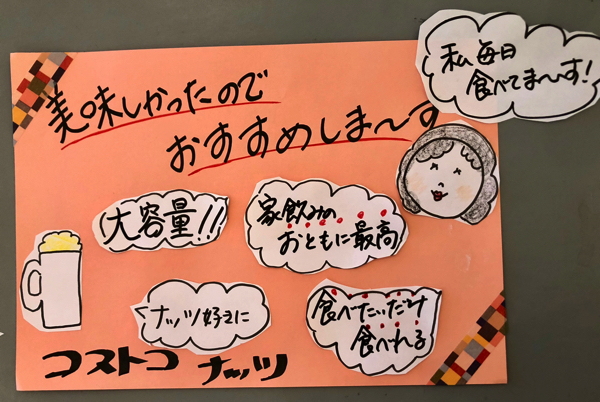 私毎日
食べてま〜す!
美味しかったので
おすすめしま〜す
大容量!!
家飲みの
おともに最高
ナッツ好きに
食べたいだけ
食べれる
コストコ
ナッツ